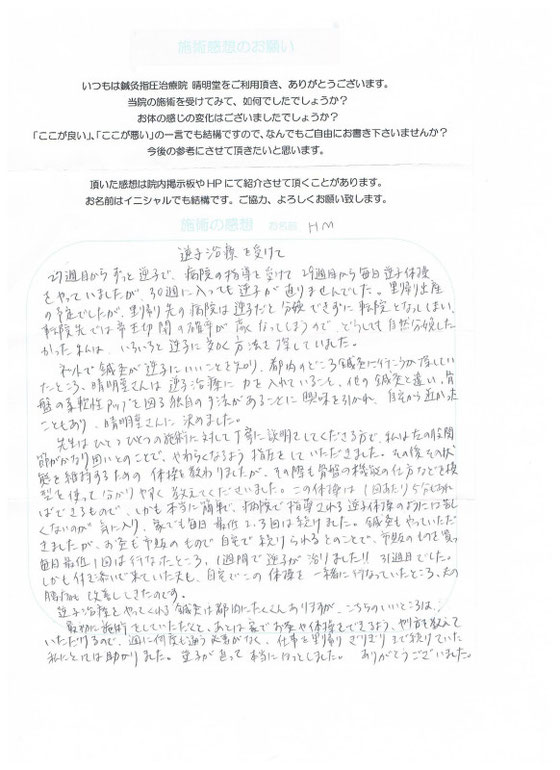 施術感想のお願い
いつもは鍼灸指圧治療院 晴明堂をご利用頂き、ありがとうございます。
当院の施術を受けてみて、如何でしたでしょうか？
お体の感じの変化はございましたでしょうか？
「ここが良い」、「ここが悪い」の一言でも結構ですので、なんでもご自由にお書き下さいませんか？
今後の参考にさせて頂きたいと思います。
頂いた感想は院内掲示板やHPにて紹介させて頂くことがあります。
お名前はイニシャルでも結構です。ご協力、よろしくお願い致します。
施術の感想 お名前 HM
逆子治療を受けて
27週目からずっと逆子で、病院の指導を受けて29週目から毎日逆子体操
をやっていましたが、30週に入っても逆子が直りませんでした。里帰り出産
の予定でしたが、里帰り先の病院は逆子だと分娩できずに転院となってしまい、
転院先では帝王切開の確率が高くなってしまうので、どうしても自然分娩した
かった私は、いろいろと逆子に効く方法を探していました。
ネットで鍼灸が逆子にいいことを知り、都内のどこの鍼灸に行こうか探してい
たところ、晴明堂さんは逆子治療に力を入れていること、他の鍼灸と違い、骨
盤の柔軟性アップを図る独自の手法があることに興味を引かれ、自宅から近かった
こともあり、晴明堂さんに決めました。
先生はひとつひとつの施術に対して丁寧に説明をしてくださる方で、私は左の股関
節がかなり固いとのことで、やわらくなるよう指圧をしていただきました。その後その状
態を維持するための体操も教わりましたが、その際も骨盤の模型の仕方などを模
型を使って分かりやすく教えてくださいました。この体操は1回あたり5分もあれ
ばできるもので、しかも本当に簡単で、病院で指導される逆子体操のように苦し
くないのが気に入り、家でも毎日最低2、3回は続けました。鍼灸もやっていただ
きましたが、お灸も市販のもので自宅で続けられるとのことで、市販のものを買って
毎日最低1回は行なったところ、1週間で逆子が治りました!! 31週目でした。
しかも付き添いで来ていた夫も、自宅でこの体操を一緒に行なっていたところ、夫の
腰痛も改善してきたのです。
逆子治療をやってくれる鍼灸は都内にたくさんありますが、こちらのいいところは、
最初に施術をしていただくと、あとは家でお灸や体操をできるよう、やり方を教えて
いただけるので、週に何度も通う必要がなく、仕事を里帰りぎりぎりまで続けていた
私にとっては助かりました。逆子が直って本当にほっとしました。ありがとうございました。